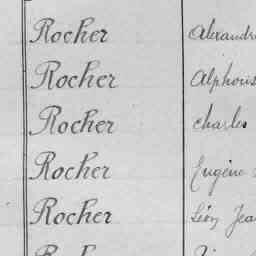 Rocher Alexandr
Rocher Alphons
Rocher Charles
Rocher Eugène
Rocher Léon Jea